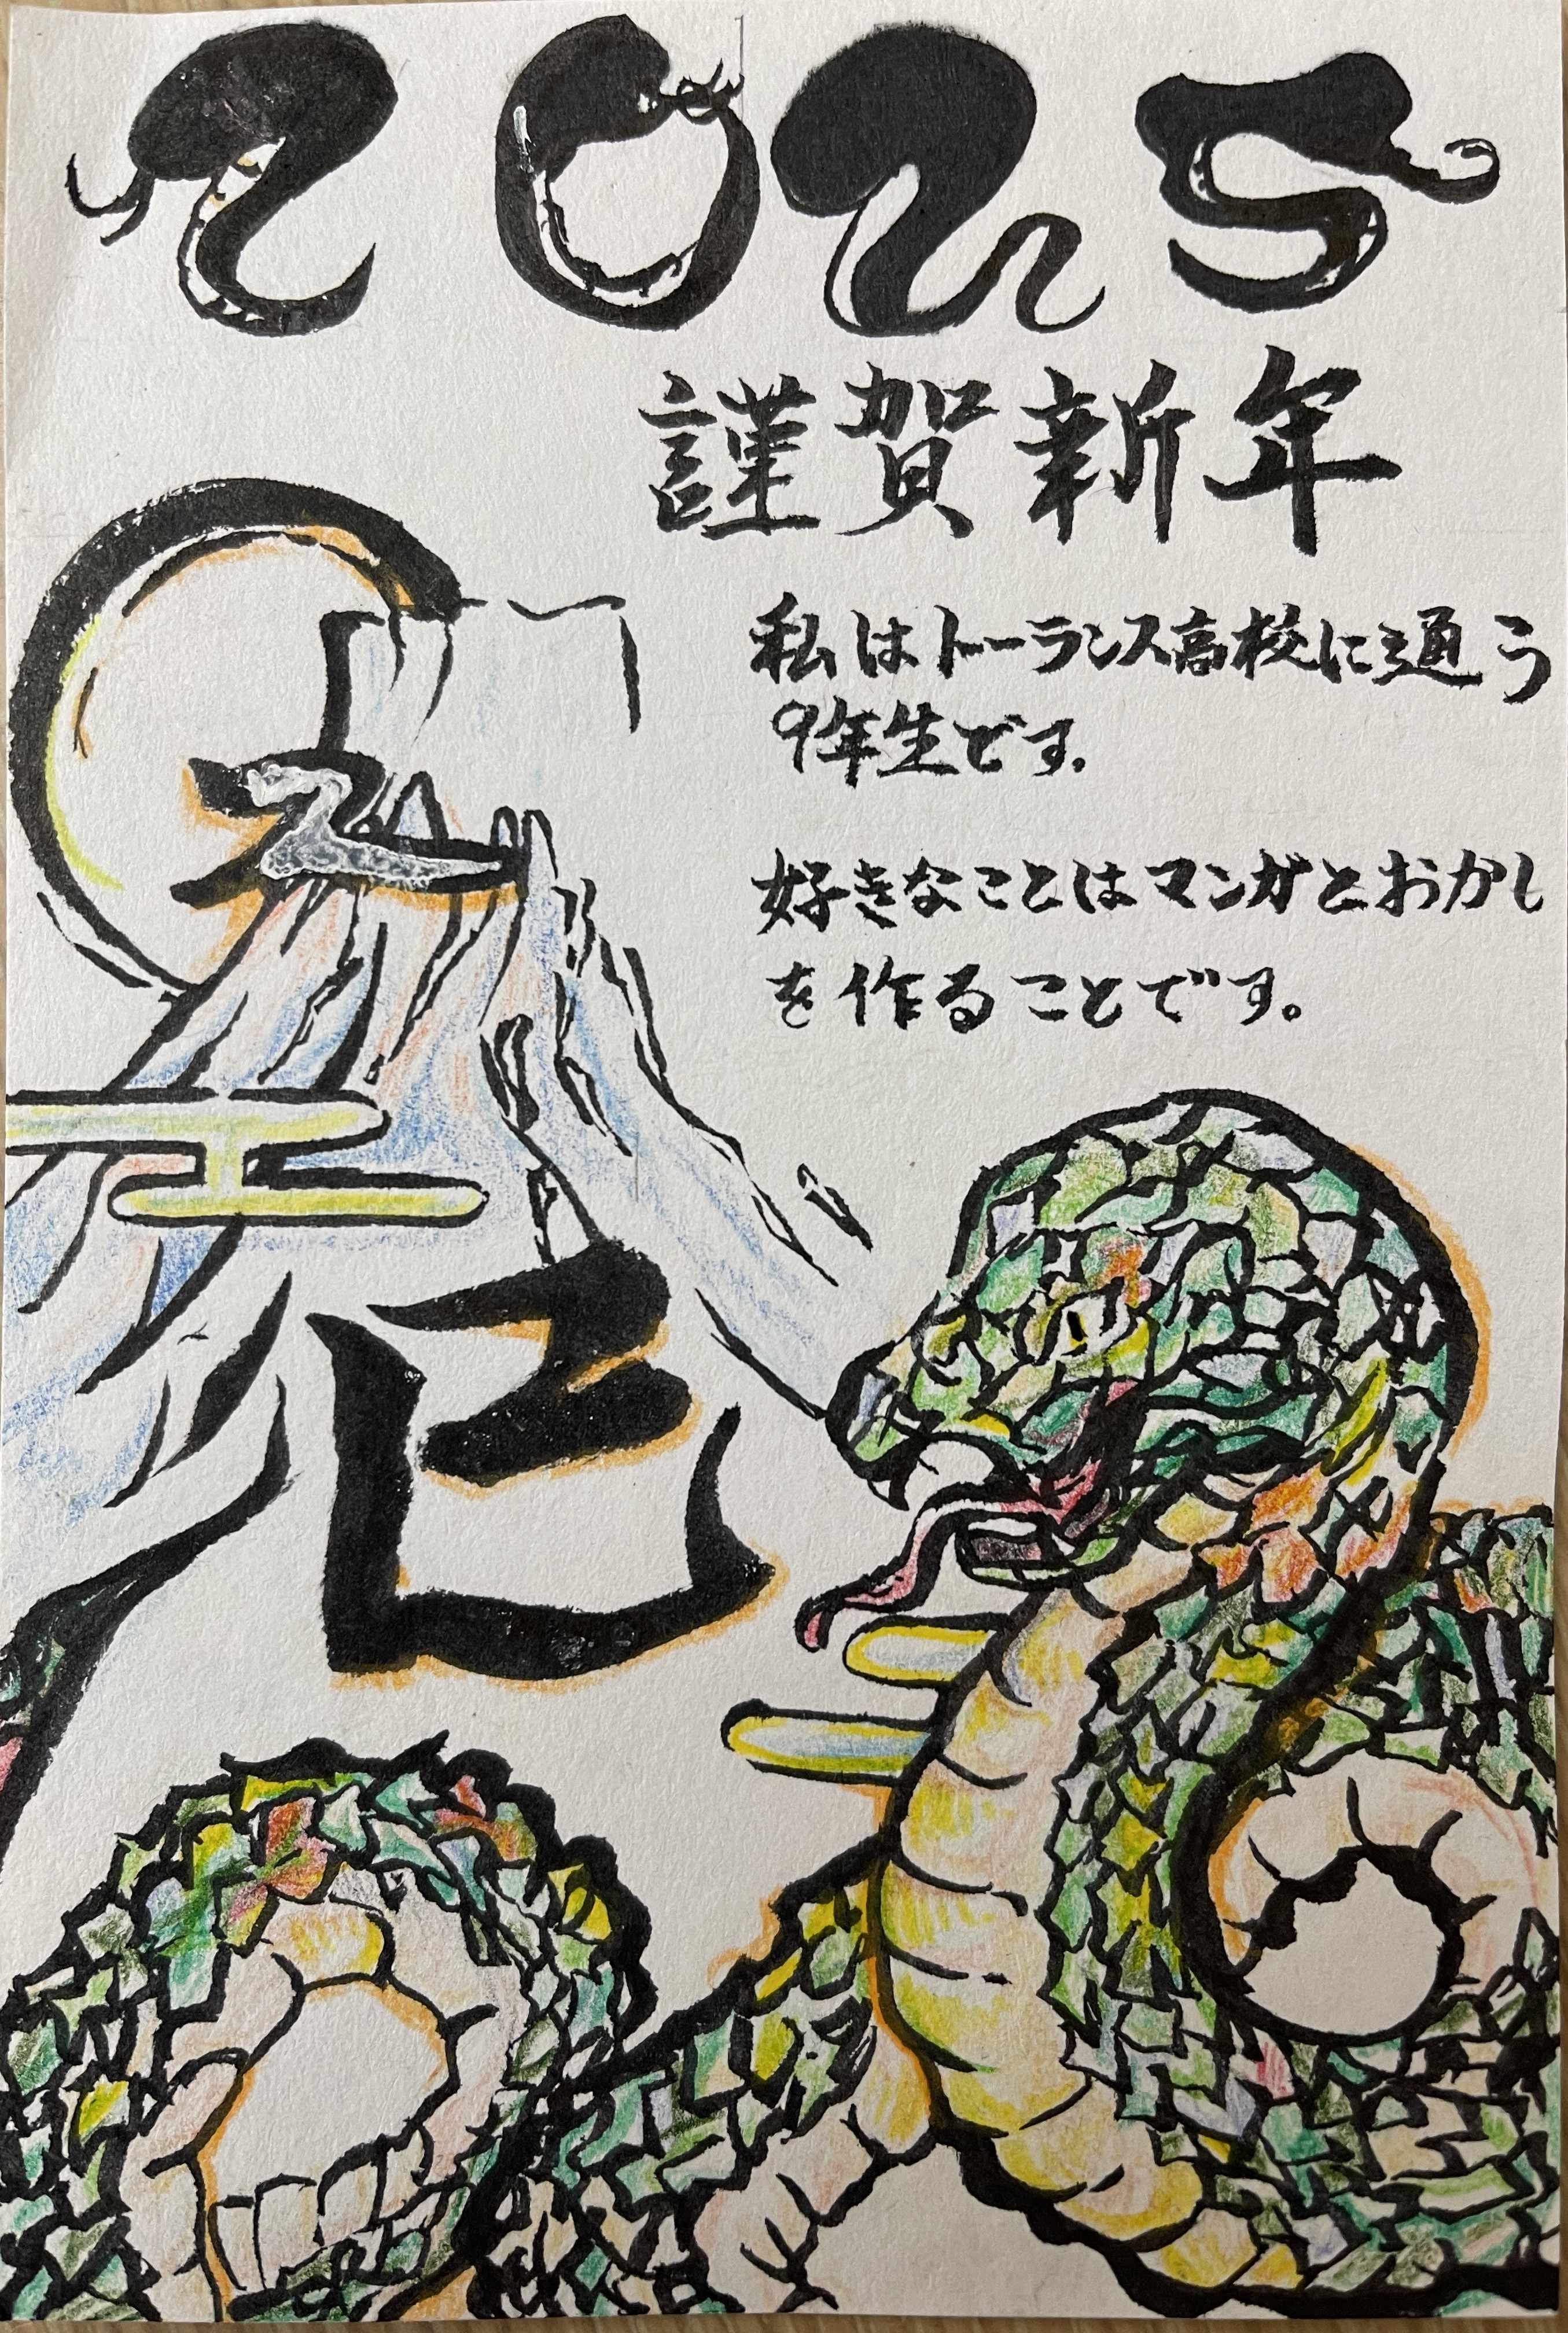 2025
謹賀新年
私はトーランス高校に通う
9年生です.
好きなことはマンガとおかし
を作ることです。